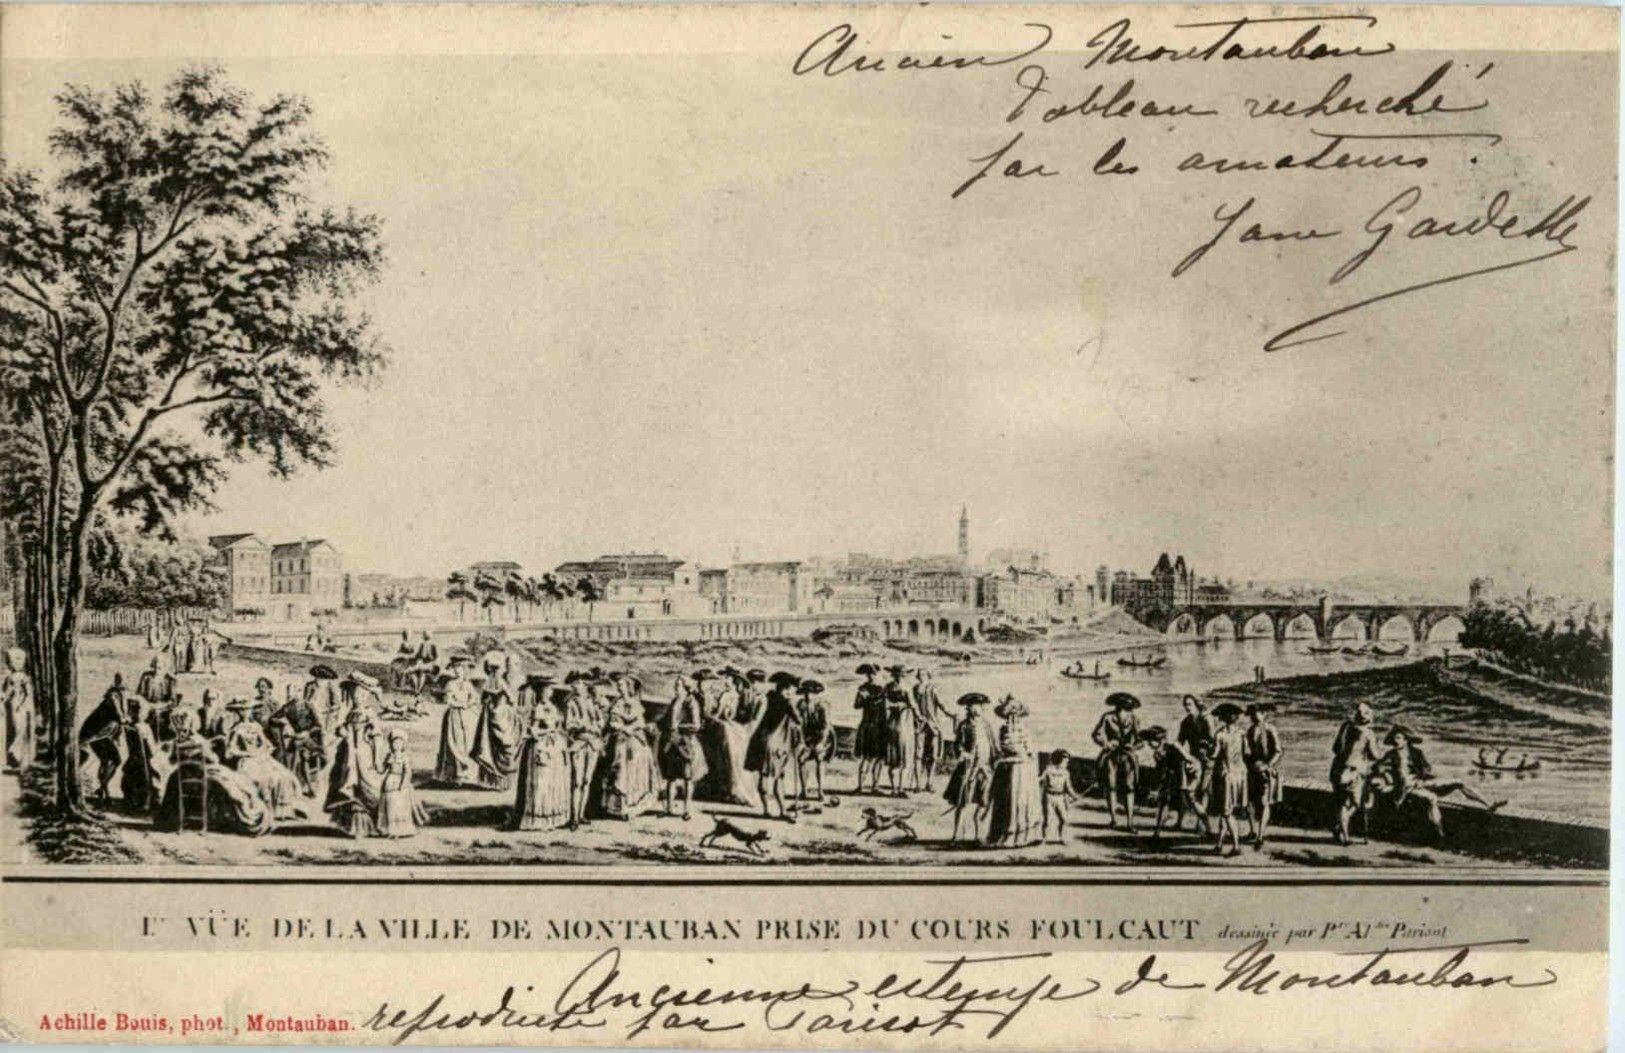 Ancien Montauban
Tableau recherché
par les amateurs.
Jane Gardelle
Ire VÜE DE LA VILLE DE MONTAUBAN PRISE DU COURS FOULCAUT dessinée par Pre Aldre Parisot
Ancienne estempe de Montauban
reproducte par Parisot
Achille Bouis, phot., Montauban.